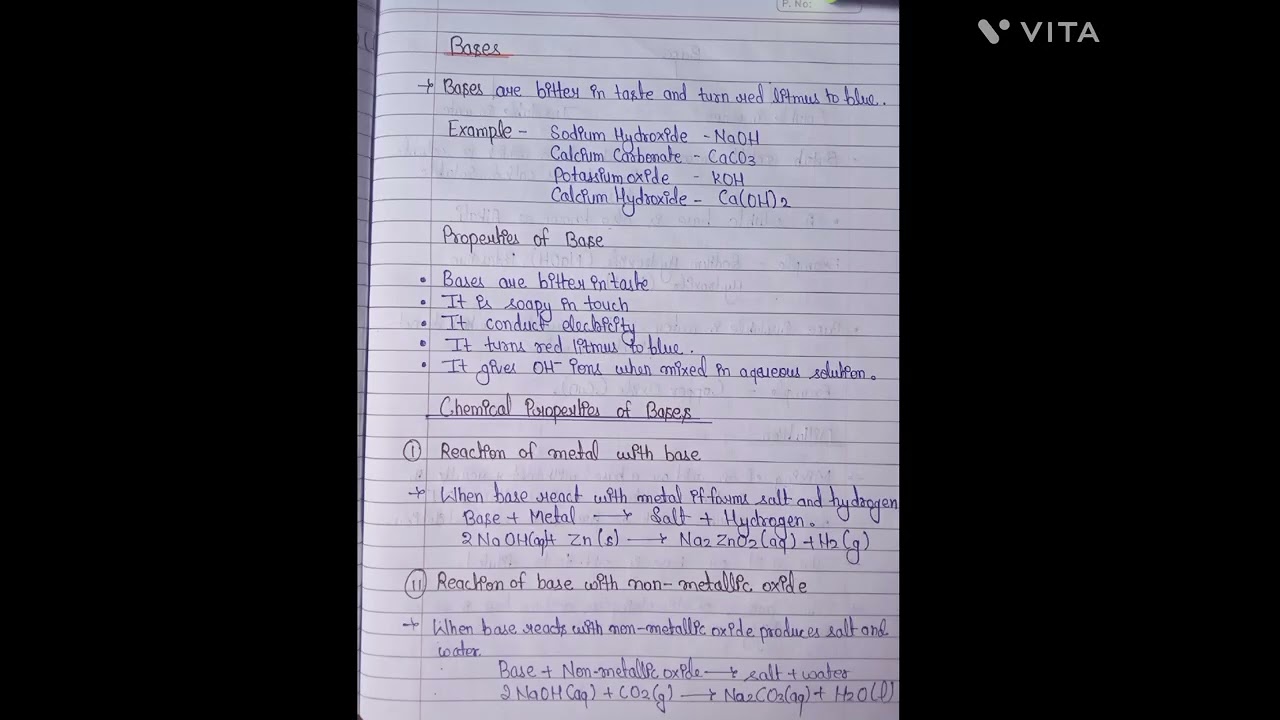 P. No:
VITA
Bases
→ Bases are bitter in taste and turn red litmus to blue.
Example - Sodium Hydroxide - NaOH
Calcium Carbonate - CaCO3
Potassium oxide - KOH
Calcium Hydroxide - Ca(OH)2
Properties of Base
• Bases are bitter in taste
• It is soapy in touch
• It conduct electricity
• It turns red litmus to blue.
• It gives OH- ions when mixed in aqueous solution.
Chemical Properties of Bases
(I) Reaction of metal with base
→ When base react with metal it forms salt and hydrogen
Base + Metal → Salt + Hydrogen.
2NaOH(aq)+ Zn(s) → Na2ZnO2(aq) + H2(g)
(II) Reaction of base with non-metallic oxide
→ When base reacts with non-metallic oxide produces salt and
water.
Base + Non-metallic oxide → salt + water
2NaOH(aq) + CO2(g) → Na2CO3(aq) + H2O(l)